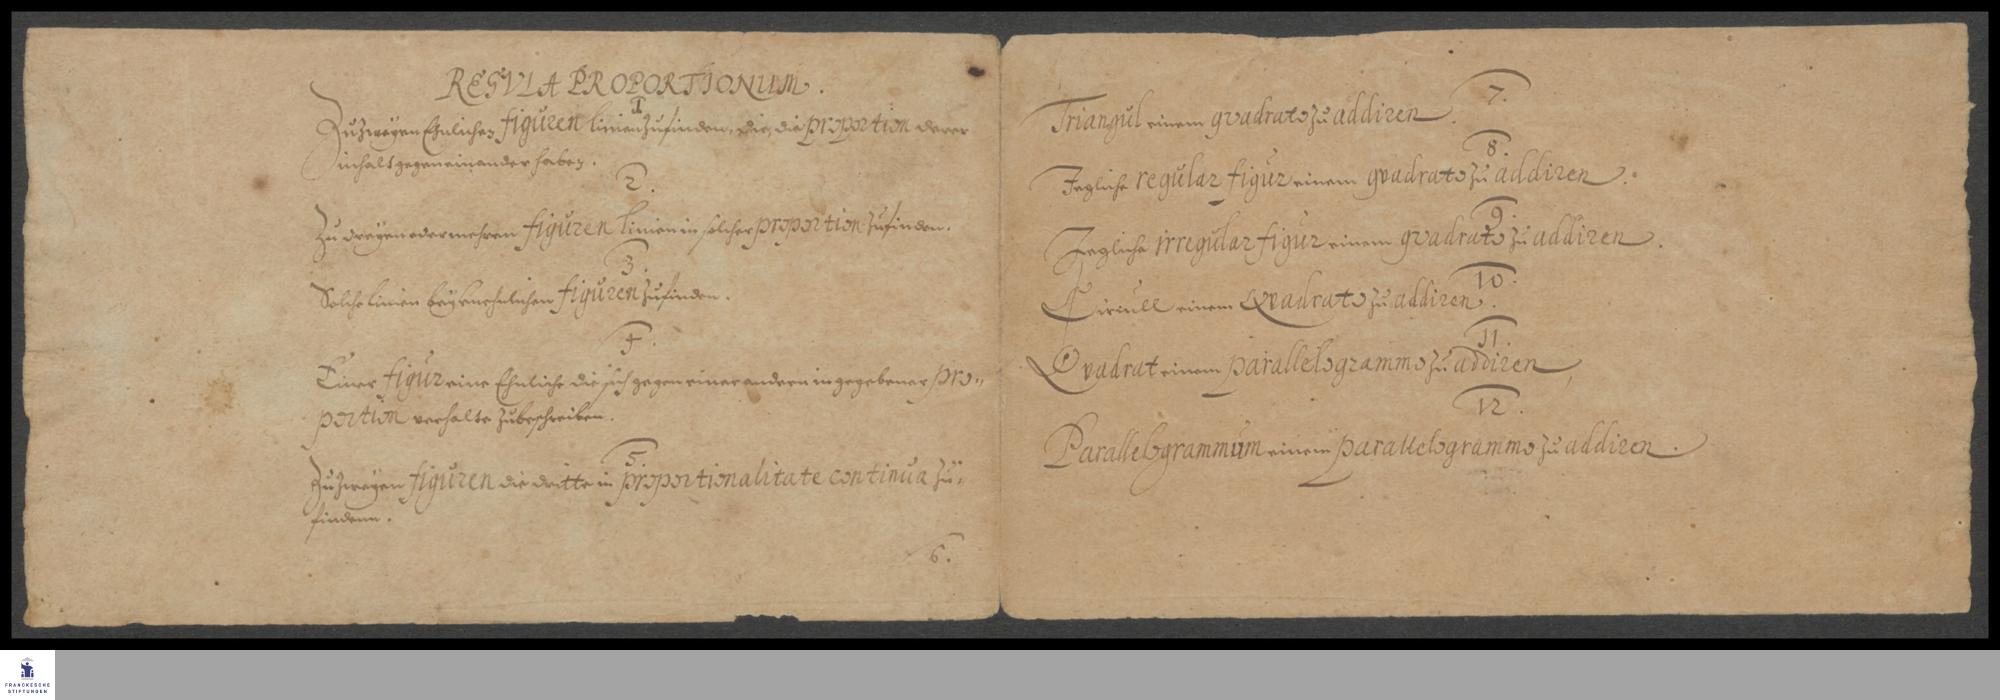 REGVLA PROPORTIONUM.
1
Zu zweyen Ehnlichen figuren linien zufinden, die, die proportion derer
inhalt gegen einander haben.
2.
Zu dreyen oder mehren figuren linien in solcher proportion zufinden.
3.
Solche linien bey unehnlichen figuren zufinden.
4.
Einer figur eine Ehnliche die sich gegen einer andern in gegebener pro=
portion verhalte zubeschreiben.
5.
Zu zweyen figuren die dritte in proportionalitate continua zu=
finden.
6.
7.
Triangul einem qvadrato zu addiren.
8.
Jegliche regular figur einem qvadrato zu addiren.
9.
Jegliche irregular figur einem qvadrato zu addiren.
10.
Circull einem Qvadrato zu addiren.
11.
Qvadrat einem parallelogrammo zu addiren,
12.
Parallelogrammum einem parallelogrammo zu addiren.
FRANCKESCHE
STIFTUNGEN